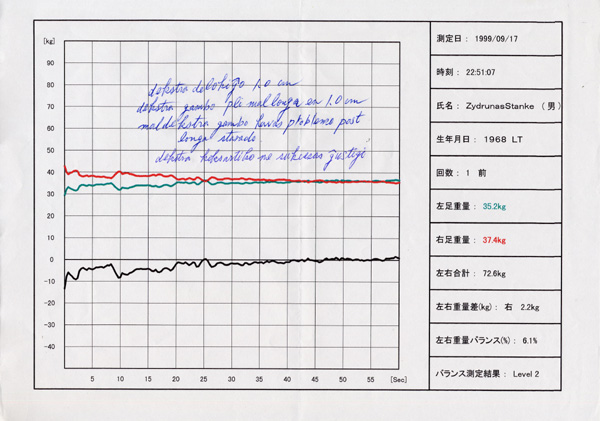 [kg]
90
80
70
60
50
40
30
20
10
0
-10
-20
-30
-40
5 10 15 20 25 30 35 40 45 50 55 60 [Sec]
1.0 cm
dekstra gambo pli mallonga en 1.0 cm
maldekstra gambo havas problemo post
longa starado.
dekstra ne sukcesas ĝustigi
測定日： 1999/09/17
時刻： 22:51:07
氏名： ZydrunasStanke （男）
生年月日： 1968 LT
回数： 1 前
左足重量： 35.2kg
右足重量： 37.4kg
左右合計： 72.6kg
左右重量差(kg)： 右 2.2kg
左右重量バランス(%)： 6.1%
バランス測定結果： Level 2